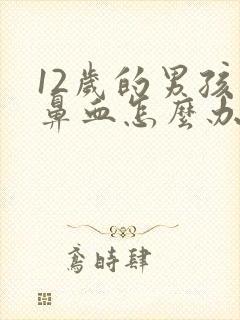 12歲的男孩
鼻血怎麼办
鳶時肆